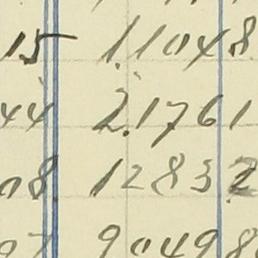 15 1.1048
44 2.1761
08 12832
07 90498